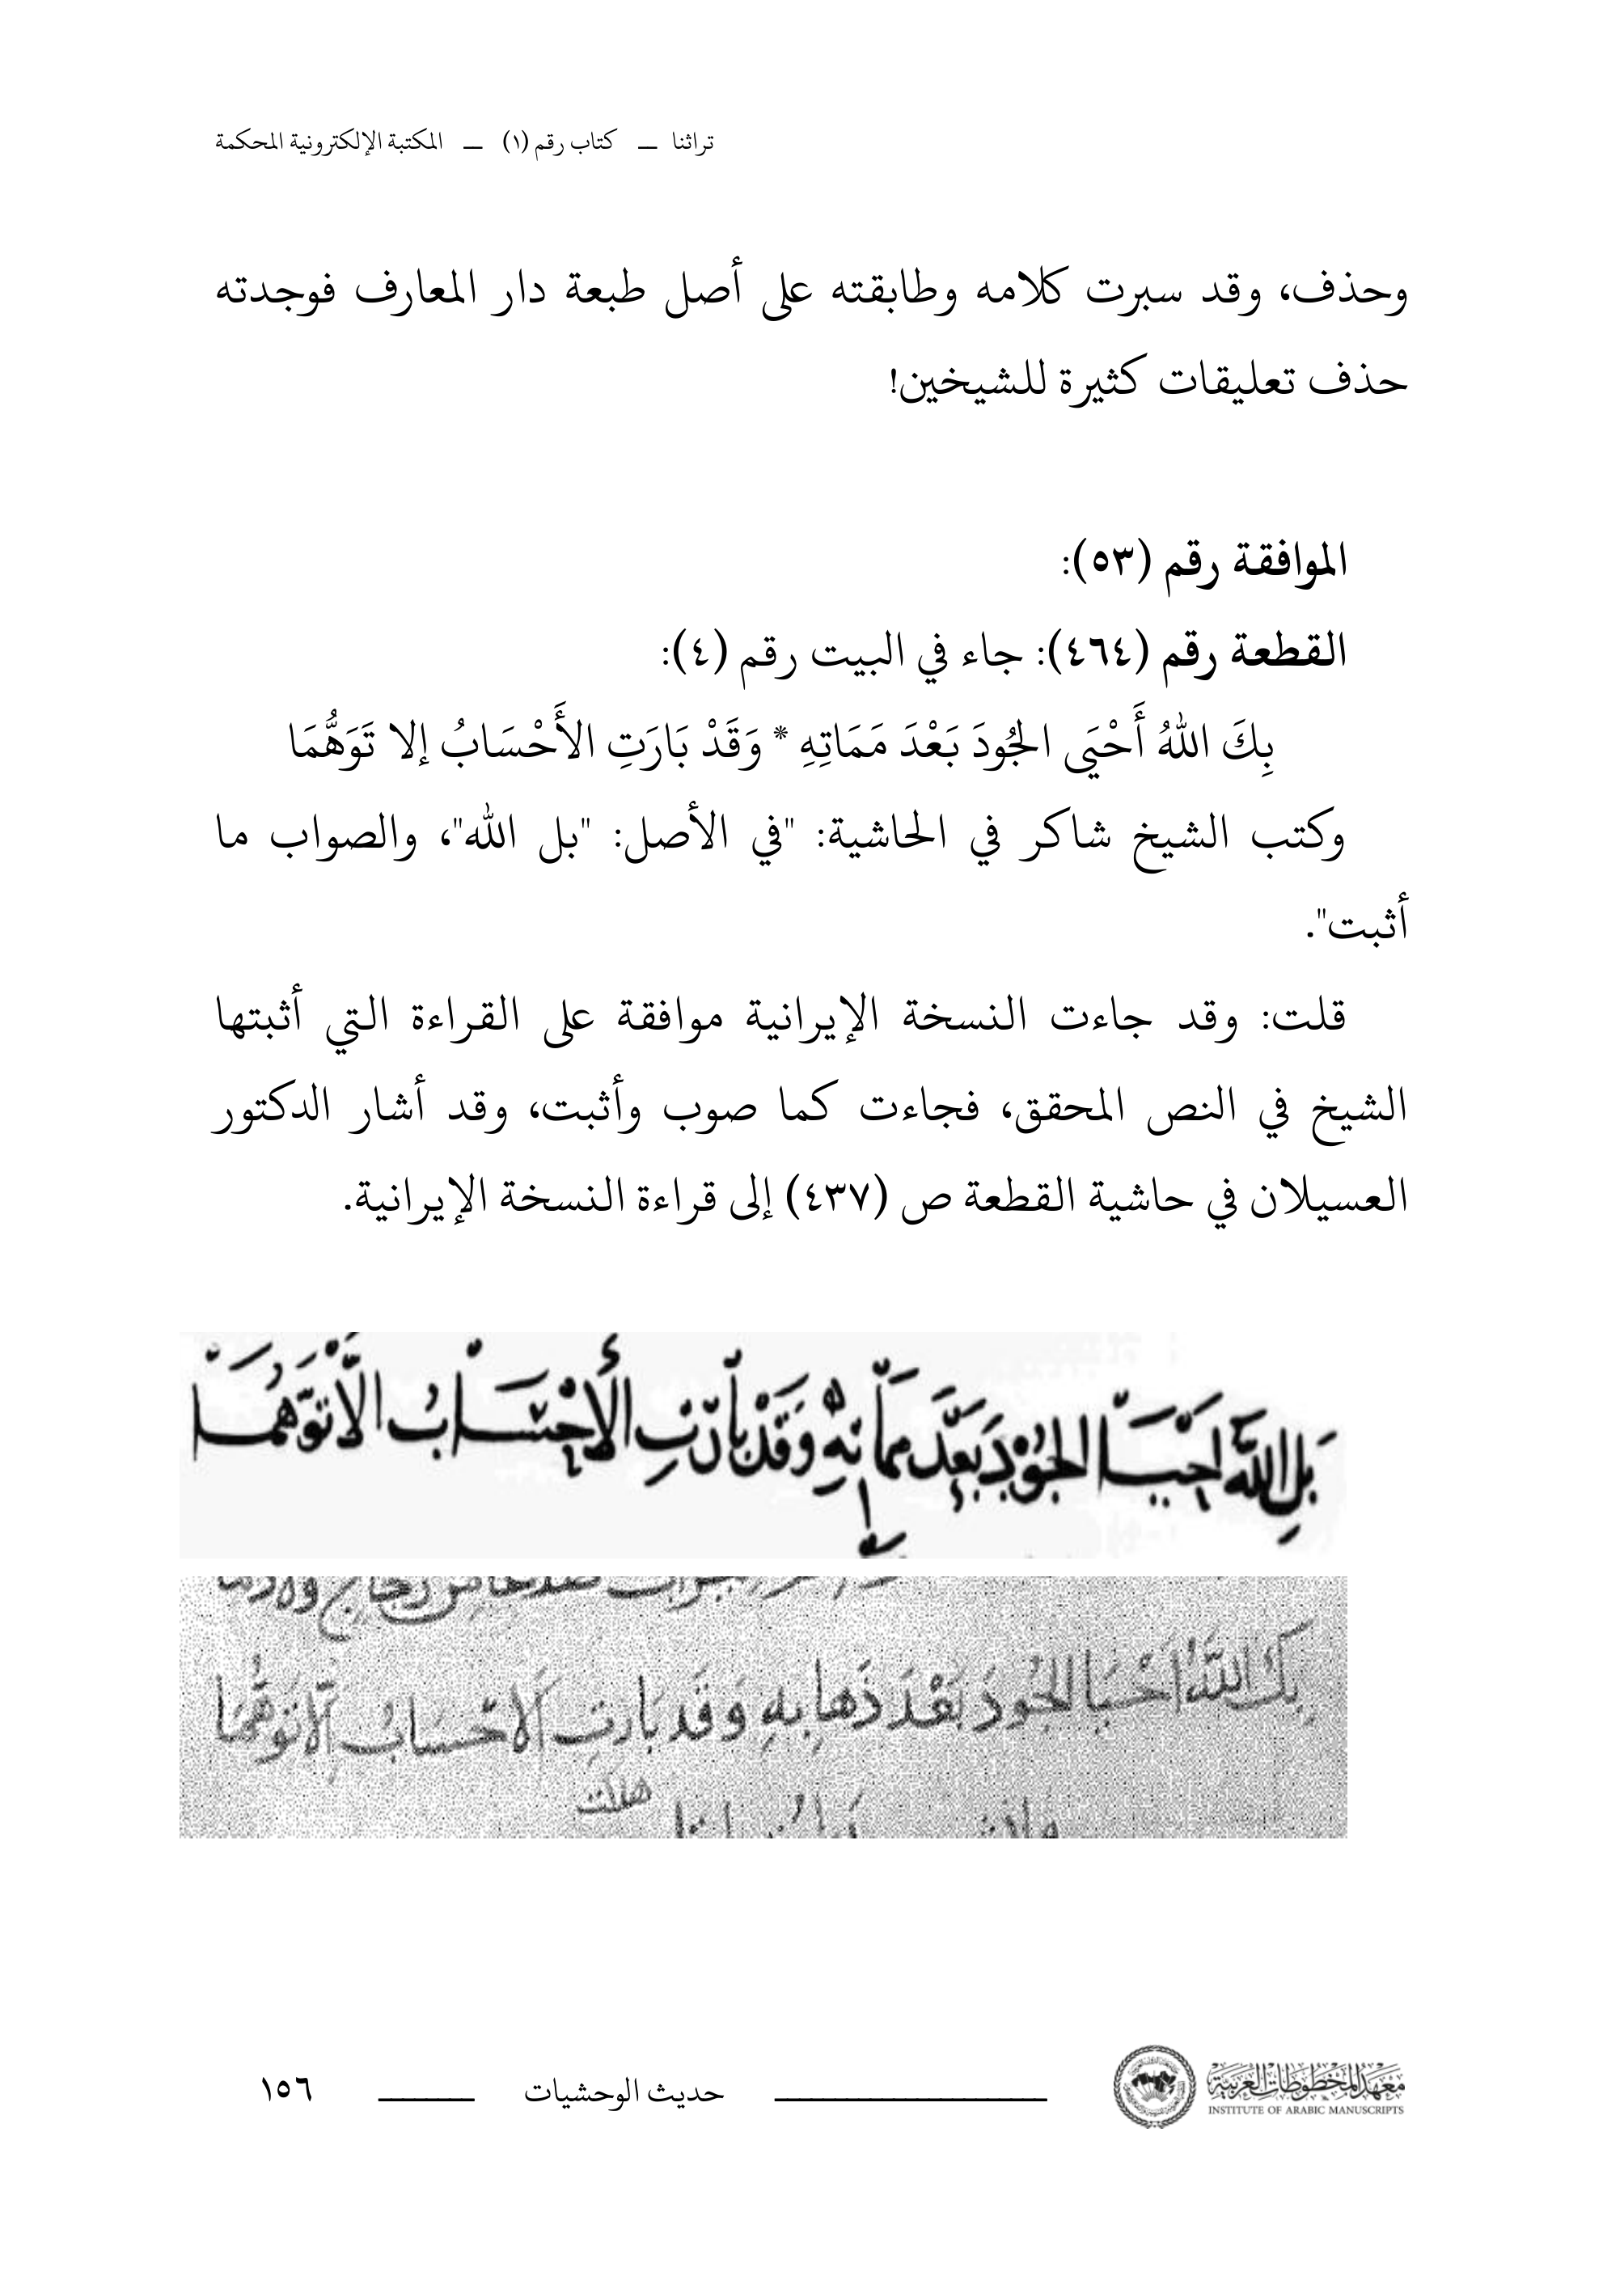 تراثنا — كتاب رقم (١) — المكتبة الإلكترونية المحكمة
وحذف، وقد سبرت كلامه وطابقته على أصل طبعة دار المعارف فوجدته
حذف تعليقات كثيرة للشيخين!
الموافقة رقم (٥٣):
القطعة رقم (٤٦٤): جاء في البيت رقم (٤):
بِكَ اللهُ أَحْيَى الجُودَ بَعْدَ مَمَاتِهِ * وَقَدْ بَارَتِ الأَحْسَابُ إلا تَوَهُّمَا
وكتب الشيخ شاكر في الحاشية: "في الأصل: "بل الله"، والصواب ما
أثبت".
قلت: وقد جاءت النسخة الإيرانية موافقة على القراءة التي أثبتها
الشيخ في النص المحقق، فجاءت كما صوب وأثبت، وقد أشار الدكتور
العسيلان في حاشية القطعة ص (٤٣٧) إلى قراءة النسخة الإيرانية.
بَلِ اللهُ احْيَا الجُوْدَ بَعْدَ مماتهِ وَقَدْ بَارَتِ الأَحْسَابُ الَّا تَوَهُّمَا
بِكَ اللَّهُ احْيَا الجُودَ بَعْدَ ذَهابِهِ وَقَد بَارتِ الاحْسَابُ الَّا تَوَهُّمَا
هللت
معهد المخطوطات العربية
INSTITUTE OF ARABIC MANUSCRIPTS
حديث الوحشيات
١٥٦